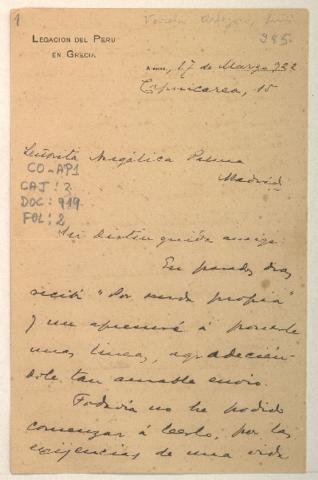 1
395.
LEGACION DEL PERU
EN GRECIA
17 de Marzo 922
15
Señorita Magálica Palma
Madrid
CO-AP1
CAJ: 3
DOC: 919
FOL: 2
Mi distinguida amiga:
En pasados días
recibí "Por senda propia"
y me apresuré á ponerle
unas líneas, agradecién-
dole tan amable envío.
Todavía no he podido
comenzar á leerlo, por las
exigencias de una vida